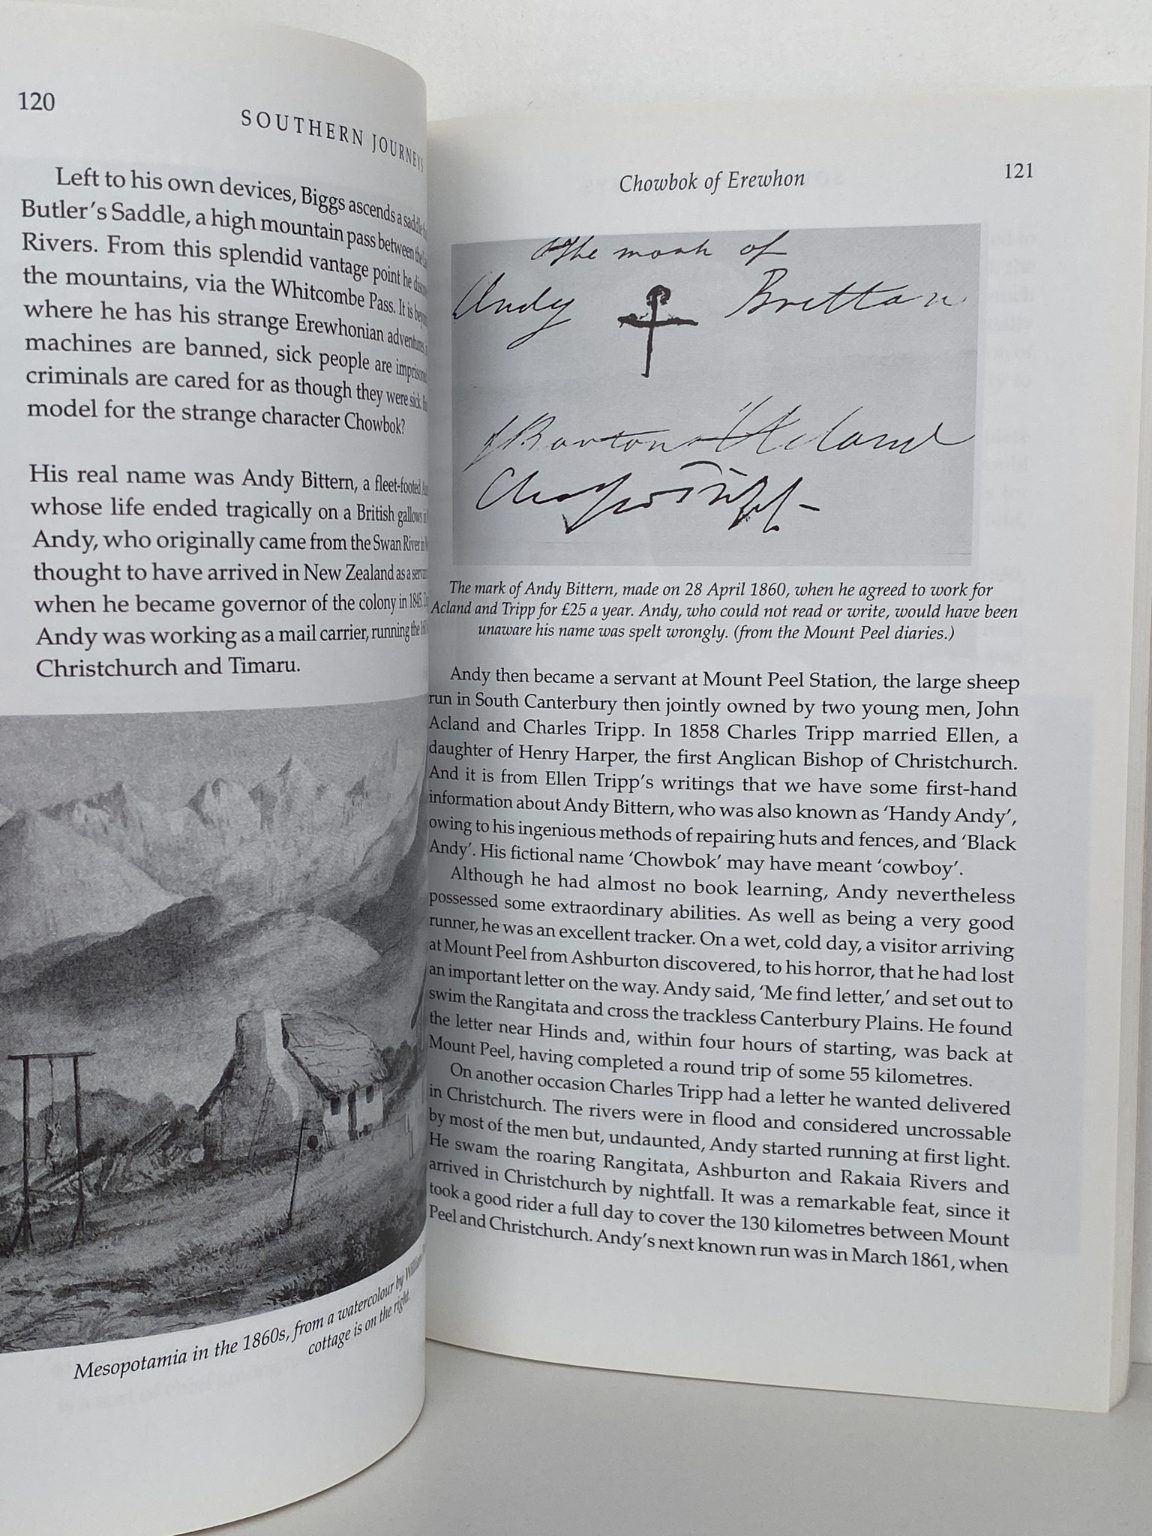 120
SOUTHERN JOURNEYS
Left to his own devices, Biggs ascends a
Butler's Saddle, a high mountain pass between the
Rivers. From this splendid vantage point he
the mountains, via the Whitcombe Pass. It is
where he has his strange Erewhonian adventures
machines are banned, sick people are
criminals are cared for as though they were sick.
model for the strange character Chowbok?
His real name was Andy Bittern, a fleet-footed
whose life ended tragically on a British gallows
Andy, who originally came from the Swan River in
thought to have arrived in New Zealand as a
when he became governor of the colony in 1845.
Andy was working as a mail carrier, running the
Christchurch and Timaru.
Mesopotamia in the 1860s, from a watercolour by
cottage is on the right.
Chowbok of Erewhon
121
The mark of
Andy Brettan
J Barton Acland
Charles Tripp
The mark of Andy Bittern, made on 28 April 1860, when he agreed to work for
Acland and Tripp for £25 a year. Andy, who could not read or write, would have been
unaware his name was spelt wrongly. (from the Mount Peel diaries.)
Andy then became a servant at Mount Peel Station, the large sheep
run in South Canterbury then jointly owned by two young men, John
Acland and Charles Tripp. In 1858 Charles Tripp married Ellen, a
daughter of Henry Harper, the first Anglican Bishop of Christchurch.
And it is from Ellen Tripp's writings that we have some first-hand
information about Andy Bittern, who was also known as 'Handy Andy',
owing to his ingenious methods of repairing huts and fences, and 'Black
Andy'. His fictional name 'Chowbok' may have meant 'cowboy'.
Although he had almost no book learning, Andy nevertheless
possessed some extraordinary abilities. As well as being a very good
runner, he was an excellent tracker. On a wet, cold day, a visitor arriving
at Mount Peel from Ashburton discovered, to his horror, that he had lost
an important letter on the way. Andy said, 'Me find letter,' and set out to
swim the Rangitata and cross the trackless Canterbury Plains. He found
the letter near Hinds and, within four hours of starting, was back at
Mount Peel, having completed a round trip of some 55 kilometres.
On another occasion Charles Tripp had a letter he wanted delivered
in Christchurch. The rivers were in flood and considered uncrossable
by most of the men but, undaunted, Andy started running at first light.
He swam the roaring Rangitata, Ashburton and Rakaia Rivers and
arrived in Christchurch by nightfall. It was a remarkable feat, since it
took a good rider a full day to cover the 130 kilometres between Mount
Peel and Christchurch. Andy's next known run was in March 1861, when